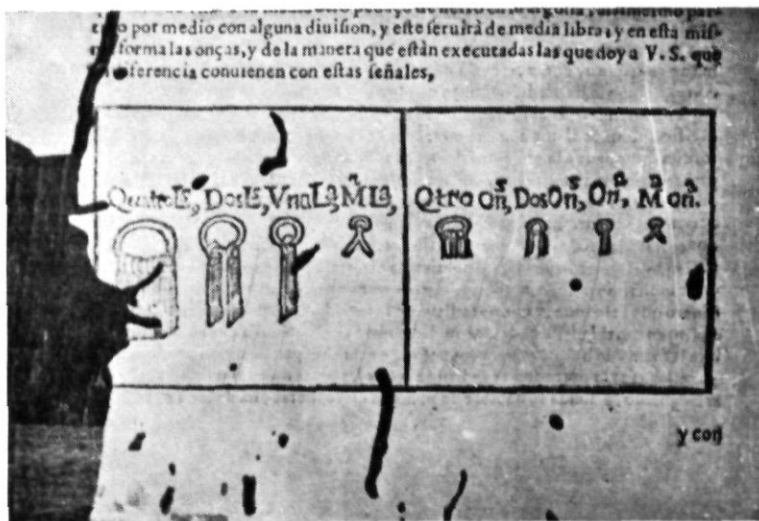 por medio con alguna diuision, y este seruirà de media libra, y en esta mis-
forma las onças, y de la manera que están executadas las que doy a V. S. que
diferencia conuienen con estas señales,
Quatro Lˢ, Dos Lˢ, Vna Lª, Mª Lª, Qtro Onˢ, Dos Onˢ, Onª, Mª onª.
y con